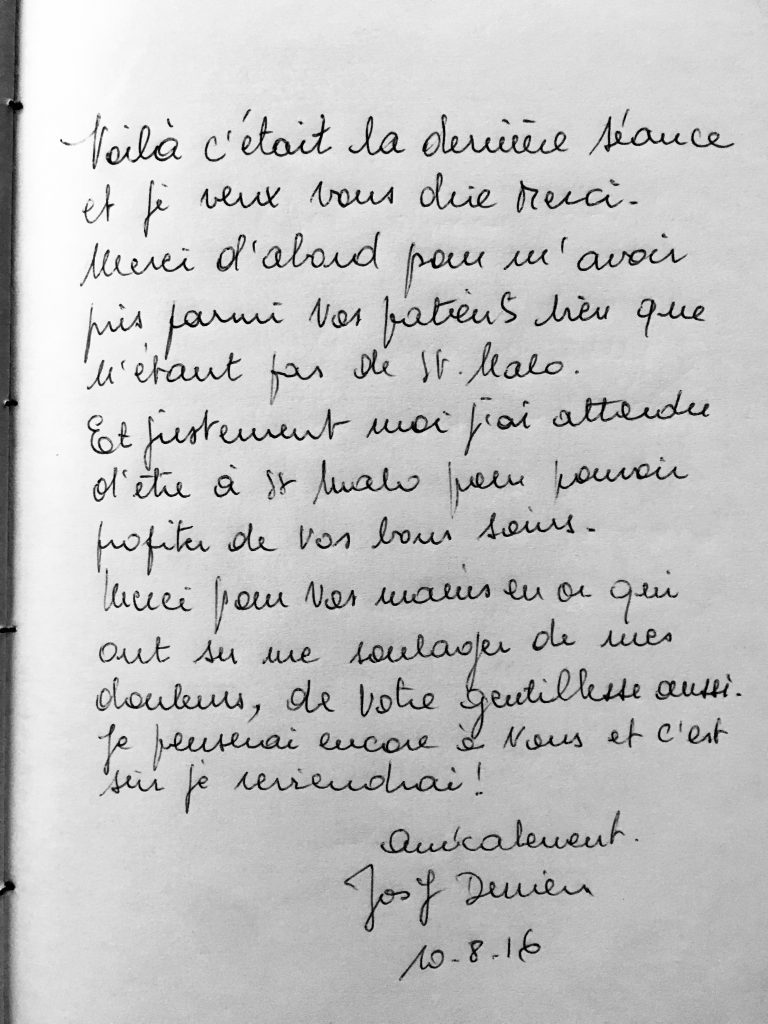 Voilà c'était la dernière séance
et je veux vous dire merci.
Merci d'abord pour m'avoir
pris parmi vos patients bien que
n'étant pas de St. Malo.
Et justement moi j'ai attendu
d'être à St Malo pour pouvoir
profiter de vos bons soins.
Merci pour vos mains en or qui
ont su me soulager de mes
douleurs, de votre gentillesse aussi.
Je penserai encore à vous et c'est
sûr je reviendrai !
Amicalement.
10-8-16